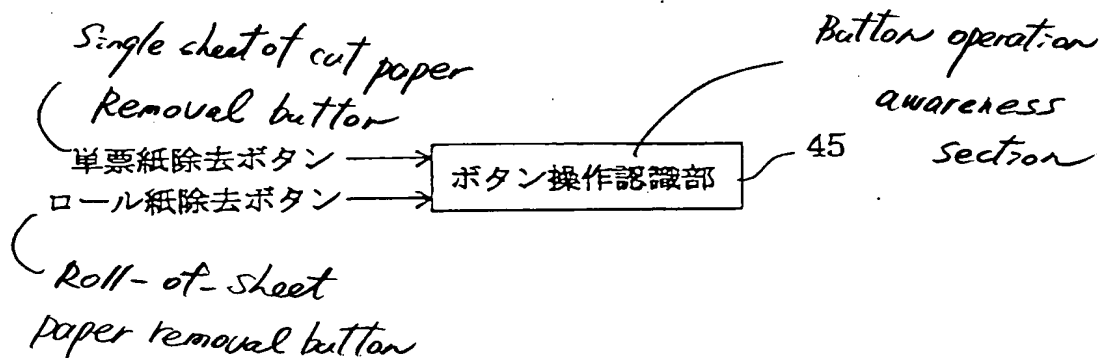 Single sheet of cut paper
Removal button
単票紙除去ボタン
ロール紙除去ボタン
Roll-of-sheet
paper removal button
ボタン操作認識部
45
Button operation
awareness
section